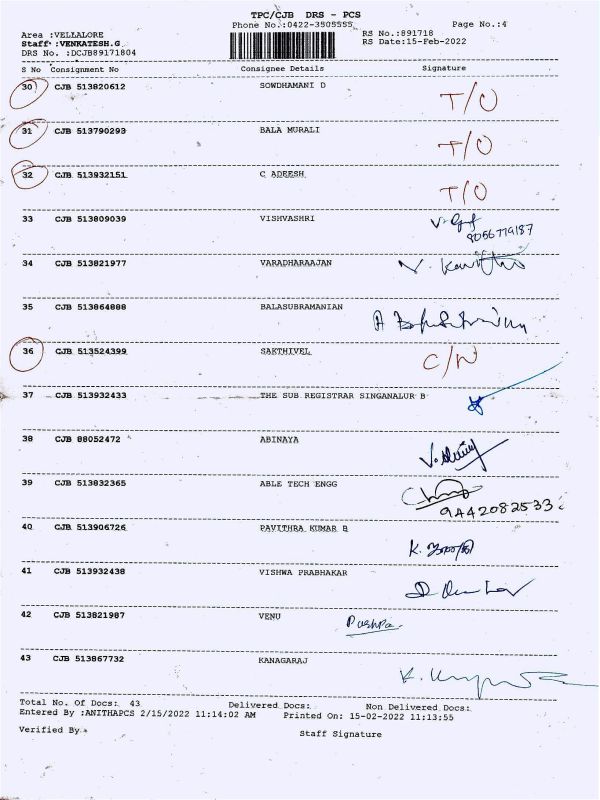 TPC/CJB DRS - PCS
Phone No.:0422-3505555 Page No.:4
Area :VELLALORE RS No.:891718
Staff :VENKATESH.G RS Date:15-Feb-2022
DRS No. :DCJB89171804
S No Consignment No Consignee Details Signature
30 CJB 513820612 SOWDHAMANI D T/O
31 CJB 513790293 BALA MURALI T/O
32 CJB 513932151 C ADEESH T/O
33 CJB 513809039 VISHVASHRI
9056779187
34 CJB 513821977 VARADHARAAJAN
35 CJB 513864888 BALASUBRAMANIAN
36 CJB 513524399 SAKTHIVEL C/N
37 CJB 513932433 THE SUB REGISTRAR SINGANALUR B
38 CJB 88052472 ABINAYA
39 CJB 513832365 ABLE TECH ENGG
9442082533
40 CJB 513906726 PAVITHRA KUMAR B
41 CJB 513932438 VISHWA PRABHAKAR
42 CJB 513821987 VENU Pushpa.
43 CJB 513867732 KANAGARAJ
Total No. Of Docs: 43 Delivered Docs: Non Delivered Docs:
Entered By :ANITHAPCS 2/15/2022 11:14:02 AM Printed On: 15-02-2022 11:13:55
Verified By Staff Signature